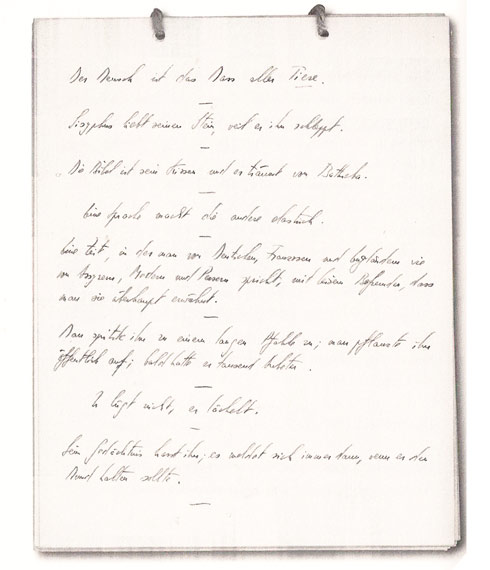 Der Mensch ist das Mass aller Tiere.
Sisyphus liebt seinen Stein, weil er ihn schleppt.
Die Bibel ist sein Kissen und er träumt von Bathseba.
Eine Sprache macht die andere elastisch.
Eine Zeit, in der man von Deutschen, Franzosen und Engländern wie
von Assyrern, Medern und Persern spricht, mit leisem Befremden, dass
man sie überhaupt erwähnt.
Man spitzte ihn zu einem langen Pfahle zu; man pflanzte ihn
öffentlich auf; bald hatte er tausend
Er lügt nicht, er lächelt.
Sein Gedächtnis hasst ihn; es meldet sich immer dann, wenn er den
Mund halten sollte.